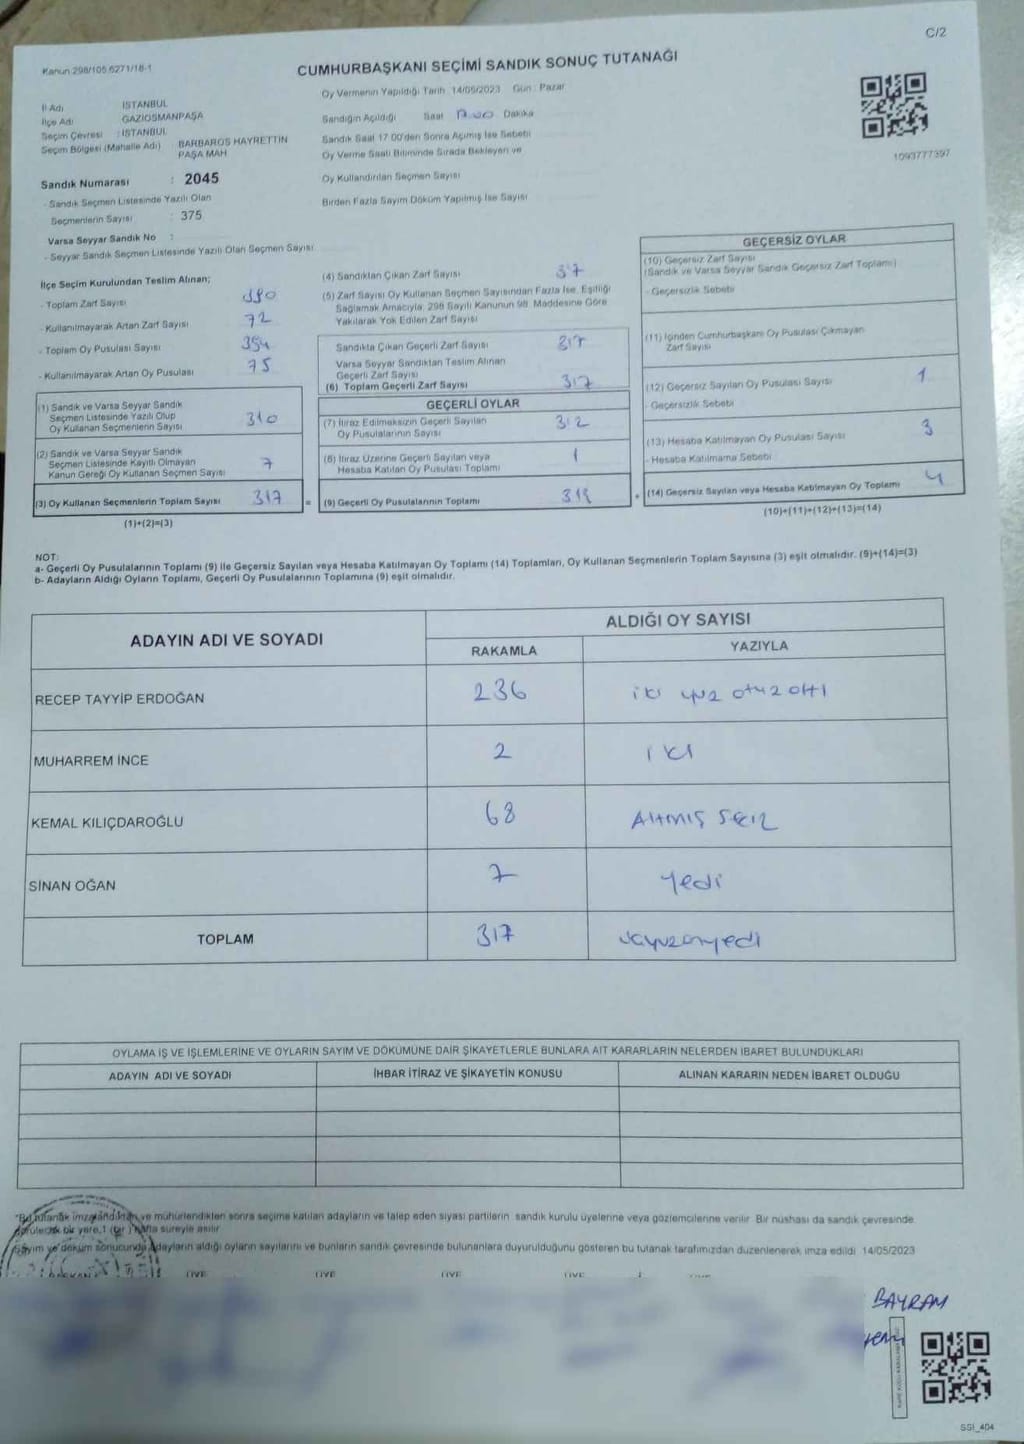 C/2
Kanun 298/105 6271/18-1
CUMHURBAŞKANI SEÇİMİ SANDIK SONUÇ TUTANAĞI
İl Adı İSTANBUL
İlçe Adı GAZİOSMANPAŞA
Seçim Çevresi : İSTANBUL
Seçim Bölgesi (Mahalle Adı) BARBAROS HAYRETTİN PAŞA MAH
Sandık Numarası : 2045
- Sandık Seçmen Listesinde Yazılı Olan
Seçmenlerin Sayısı : 375
Varsa Seyyar Sandık No :
- Seyyar Sandık Seçmen Listesinde Yazılı Olan Seçmen Sayısı
Oy Vermenin Yapıldığı Tarih 14/05/2023 Gün : Pazar
Sandığın Açıldığı Saat 17.00 Dakika
Sandık Saat 17 00'den Sonra Açmış İse Sebebi
Oy Verme Saati Bitiminde Sırada Bekleyen ve
Oy Kullandırılan Seçmen Sayısı
Birden Fazla Sayım Döküm Yapılmış İse Sayısı
1093777397
İlçe Seçim Kurulundan Teslim Alınan;
- Toplam Zarf Sayısı 390
- Kullanılmayarak Artan Zarf Sayısı 72
- Toplam Oy Pusulası Sayısı 394
- Kullanılmayarak Artan Oy Pusulası 75
(1) Sandık ve Varsa Seyyar Sandık
Seçmen Listesinde Yazılı Olup
Oy Kullanan Seçmenlerin Sayısı 310
(2) Sandık ve Varsa Seyyar Sandık
Seçmen Listesinde Kayıtlı Olmayan
Kanun Gereği Oy Kullanan Seçmen Sayısı 7
(3) Oy Kullanan Seçmenlerin Toplam Sayısı 317 =
(1)+(2)=(3)
(4) Sandıktan Çıkan Zarf Sayısı 317
(5) Zarf Sayısı Oy Kullanan Seçmen Sayısından Fazla İse, Eşitliği
Sağlamak Amacıyla, 298 Sayılı Kanunun 98. Maddesine Göre
Yakılarak Yok Edilen Zarf Sayısı
Sandıkta Çıkan Geçerli Zarf Sayısı 317
Varsa Seyyar Sandıktan Teslim Alınan
Geçerli Zarf Sayısı
(6) Toplam Geçerli Zarf Sayısı 317
GEÇERLİ OYLAR
(7) İtiraz Edilmeksizin Geçerli Sayılan
Oy Pusulalarının Sayısı 312
(8) İtiraz Üzerine Geçerli Sayılan veya
Hesaba Katılan Oy Pusulası Toplamı 1
(9) Geçerli Oy Pusulalarının Toplamı +
GEÇERSİZ OYLAR
(10) Geçersiz Zarf Sayısı
(Sandık ve Varsa Seyyar Sandık Geçersiz Zarf Toplamı)
- Geçersizlik Sebebi
(11) İçinden Cumhurbaşkanı Oy Pusulası Çıkmayan
Zarf Sayısı
(12) Geçersiz Sayılan Oy Pusulası Sayısı 1
- Geçersizlik Sebebi
(13) Hesaba Katılmayan Oy Pusulası Sayısı 3
- Hesaba Katılmama Sebebi
(14) Geçersiz Sayılan veya Hesaba Katılmayan Oy Toplamı 4
(10)+(11)+(12)+(13)=(14)
NOT:
a- Geçerli Oy Pusulalarının Toplamı (9) ile Geçersiz Sayılan veya Hesaba Katılmayan Oy Toplamı (14) Toplamları, Oy Kullanan Seçmenlerin Toplam Sayısına (3) eşit olmalıdır. (9)+(14)=(3)
b- Adayların Aldığı Oyların Toplamı, Geçerli Oy Pusulalarının Toplamına (9) eşit olmalıdır.
ADAYIN ADI VE SOYADI ALDIĞI OY SAYISI
RAKAMLA YAZIYLA
RECEP TAYYİP ERDOĞAN 236 iki yuz otuz altı
MUHARREM İNCE 2 iki
KEMAL KILIÇDAROĞLU 68 Altmış sekiz
SİNAN OĞAN 7 Yedi
TOPLAM 317 üçyüzonyedi
OYLAMA İŞ VE İŞLEMLERİNE VE OYLARIN SAYIM VE DÖKÜMÜNE DAİR ŞİKAYETLERLE BUNLARA AİT KARARLARIN NELERDEN İBARET BULUNDUKLARI
ADAYIN ADI VE SOYADI İHBAR İTİRAZ VE ŞİKAYETİN KONUSU ALINAN KARARIN NEDEN İBARET OLDUĞU
"Bu tutanak imzalandıktan ve mühürlendikten sonra seçime katılan adayların ve talep eden siyasi partilerin sandık kurulu üyelerine veya gözlemcilerine verilir. Bir nüshası da sandık çevresinde
görülecek bir yere 1 (bir) hafta süreyle asılır
Sayım ve döküm sonucunda adayların aldığı oyların sayılarını ve bunların sandık çevresinde bulunanlara duyurulduğunu gösteren bu tutanak tarafımızdan düzenlenerek imza edildi 14/05/2023
BAŞKAN ÜYE ÜYE ÜYE ÜYE
BAYRAM
SSI_404